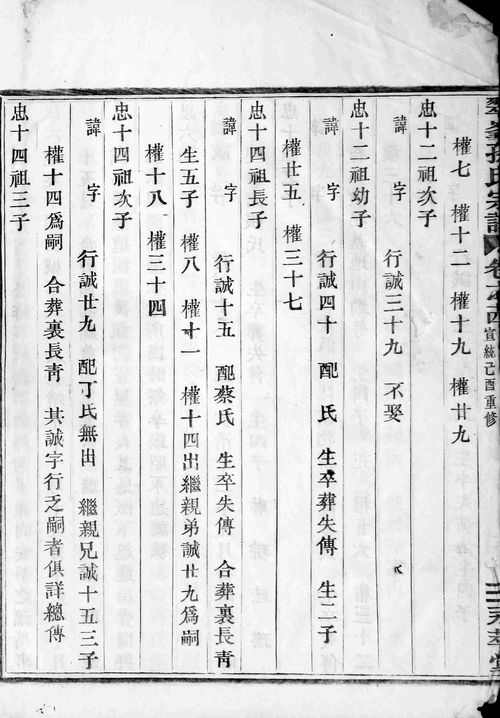 孫氏宗譜 卷之四 宣統己酉重修
權七 權十二 權十九 權廿九
忠十二祖次子
諱 字 行誠三十九 不娶
忠十二祖幼子
諱 字 行誠四十 配 氏 生卒葬失傳 生二子
權廿五 權三十七
忠十四祖長子
諱 字 行誠十五 配蔡氏 生卒失傳 合葬裏長靑
生五子 權八 權十一 權十四出繼親弟誠廿九爲嗣
權十八 權三十四
忠十四祖次子
諱 字 行誠廿九 配丁氏無出 繼親兄誠十五三子
權十四爲嗣 合葬裏長靑 其誠字行乏嗣者俱詳總傳
忠十四祖三子